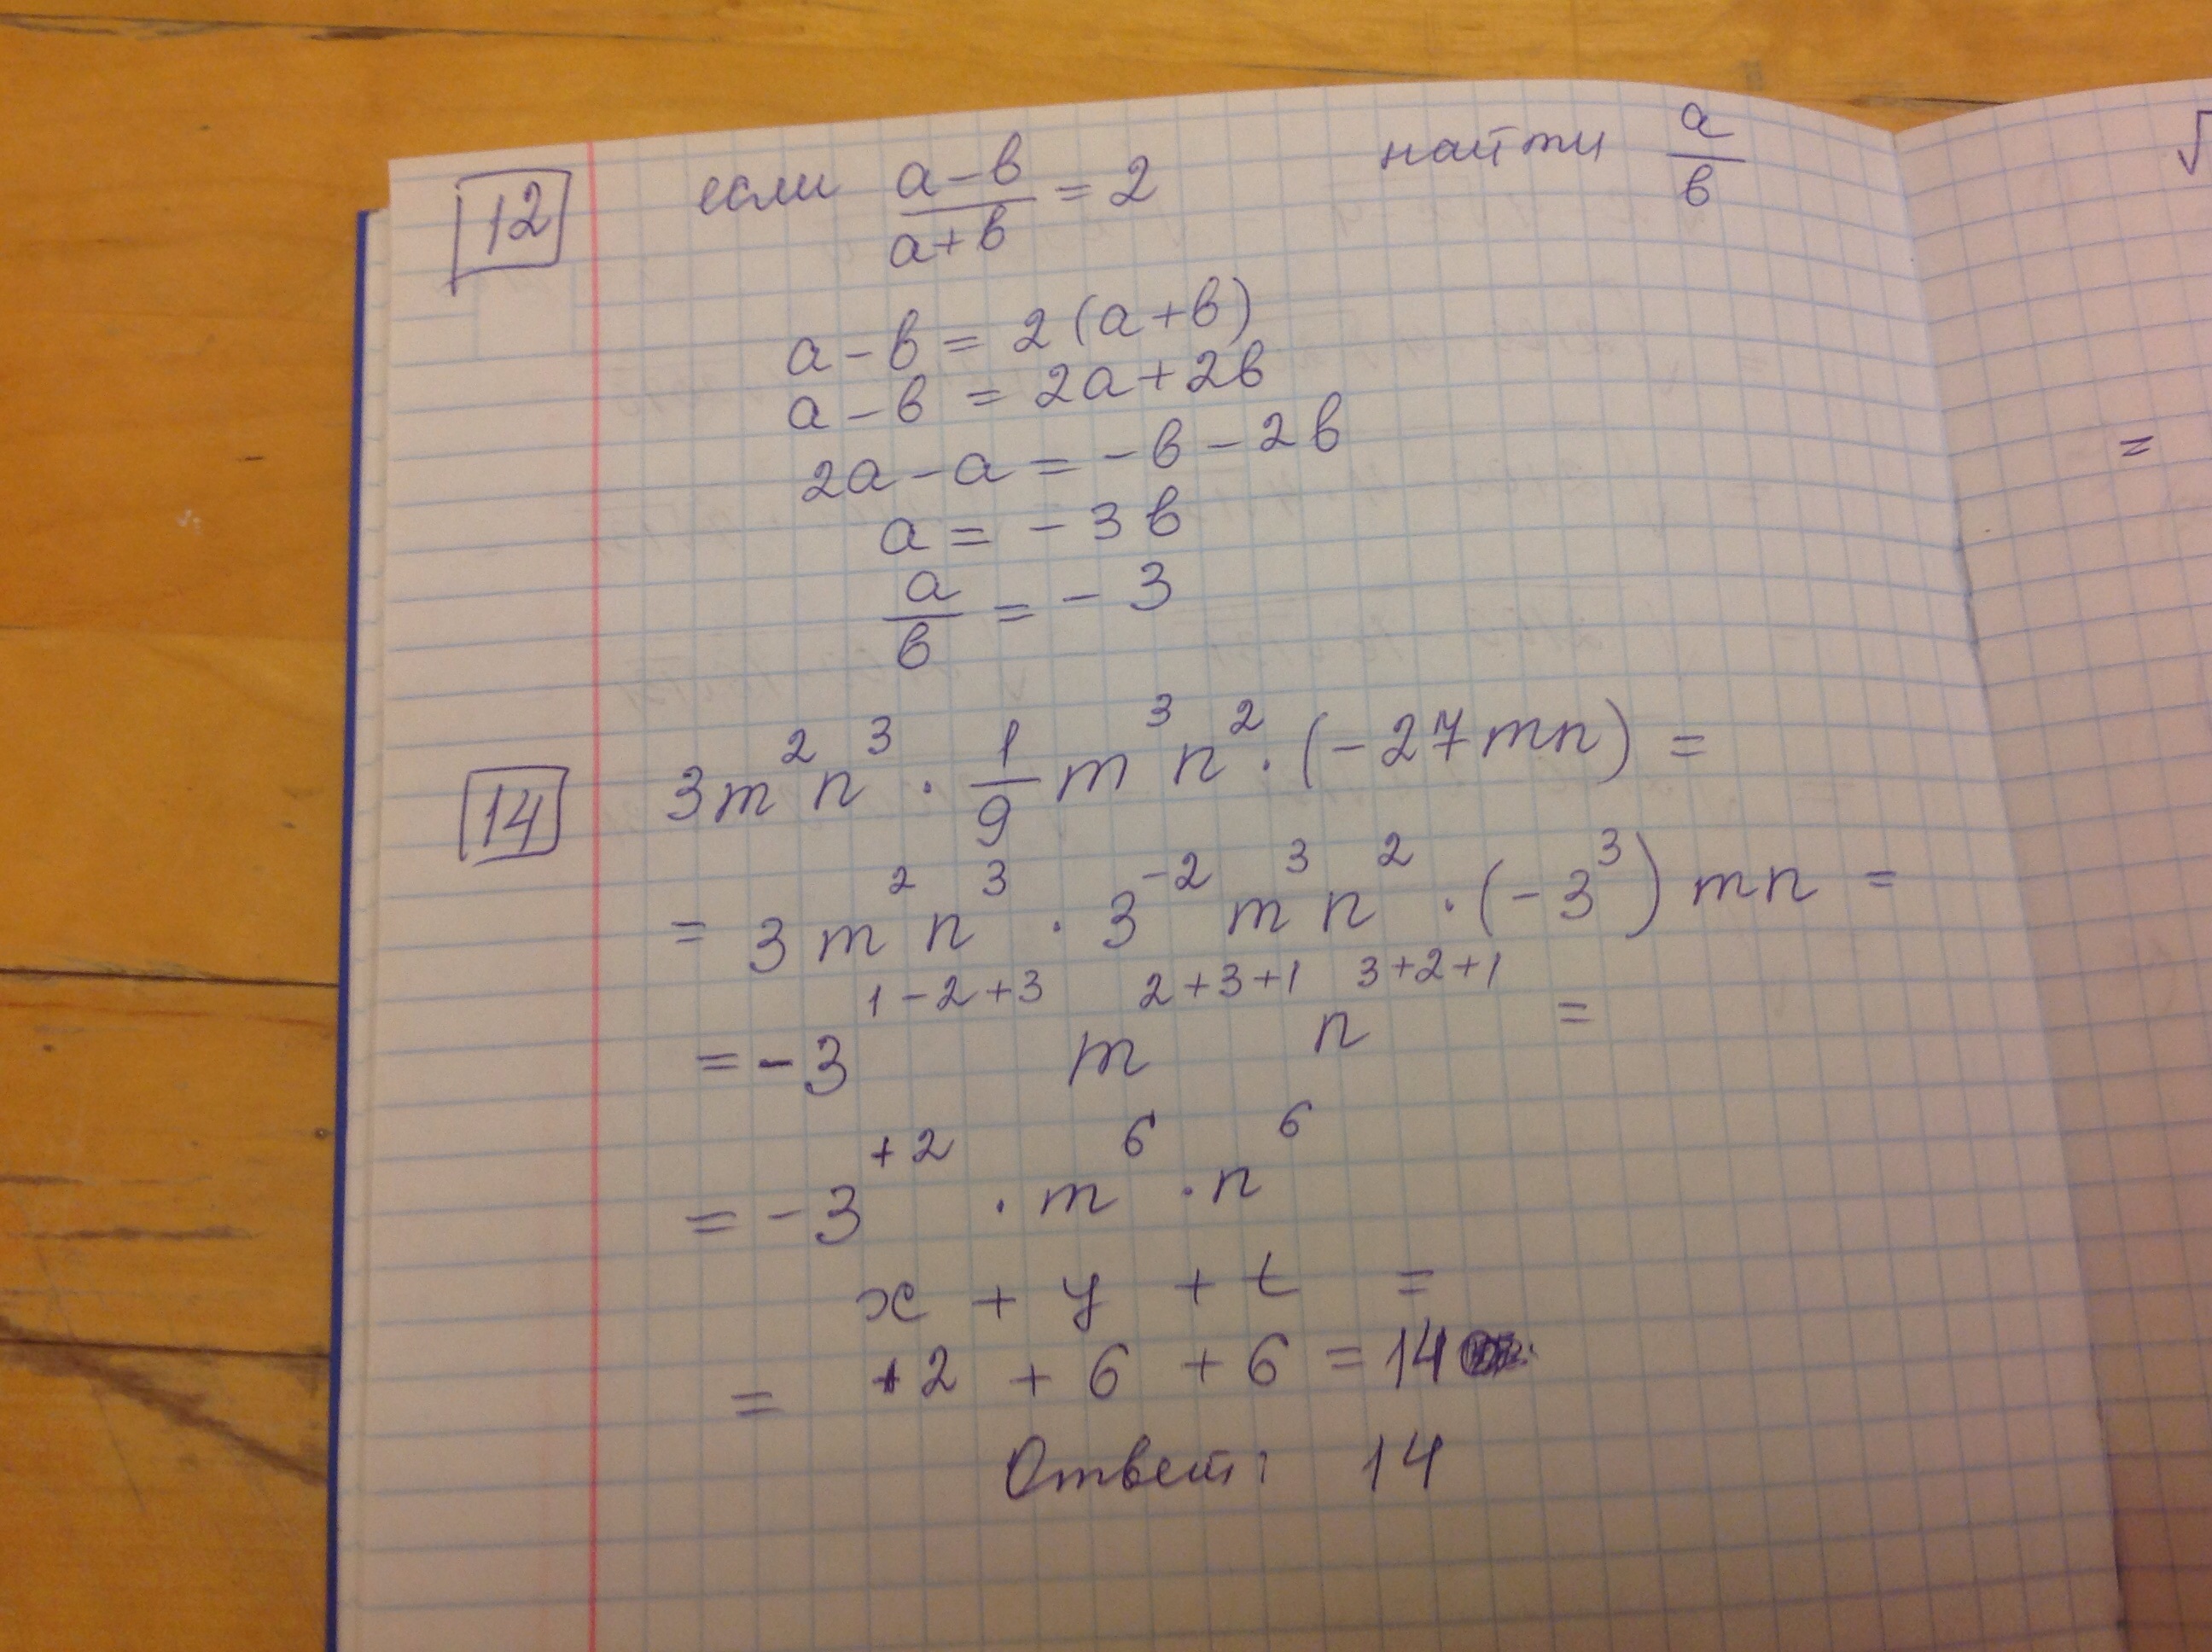 12 если (a-в)/(a+в) = 2 найти a/в
a-в = 2(a+в)
a-в = 2a+2в
2a-a = -в-2в
a = -3в
a/в = -3
14 3m²n³ · 1/9 m³n² · (-27mn) =
= 3m²n³ · 3⁻² m³n² · (-3³) mn =
= -3¹⁻²⁺³ m²⁺³⁺¹ n³⁺²⁺¹ =
= -3⁺² · m⁶ · n⁶
x + y + t =
= +2 + 6 + 6 = 14
Ответ: 14
√
=